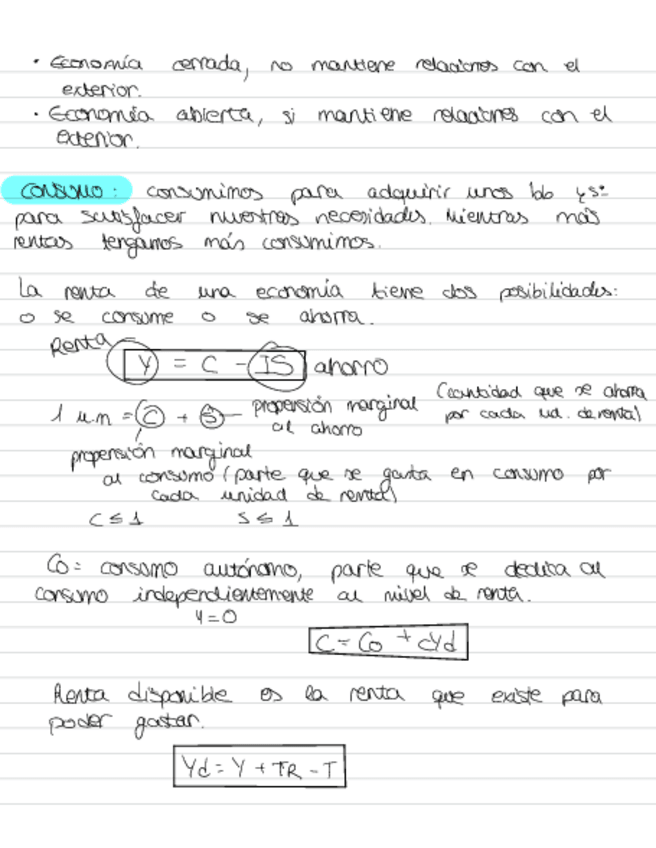 · Economía cerrada, no mantiene relaciones con el
exterior.
· Economía abierta, si mantiene relaciones con el
exterior.
CONSUMO: consumimos para adquirir unos bb y sº
para satisfacer nuestras necesidades. Mientras más
rentas tengamos más consumimos.
La renta de una economía tiene dos posibilidades:
o se consume o se ahorra.
Renta
Y = C - IS ahorro
1 u.m = C + S propensión marginal (cantidad que se ahorra
al ahorro por cada ud. de renta)
propensión marginal
al consumo (parte que se gasta en consumo por
cada unidad de renta)
C ≤ 1 S ≤ 1
Co = consumo autónomo, parte que se dedica al
consumo independientemente al nivel de renta.
Y = 0
C = Co + cYd
Renta disponible es la renta que existe para
poder gastar.
Yd = Y + TR - T